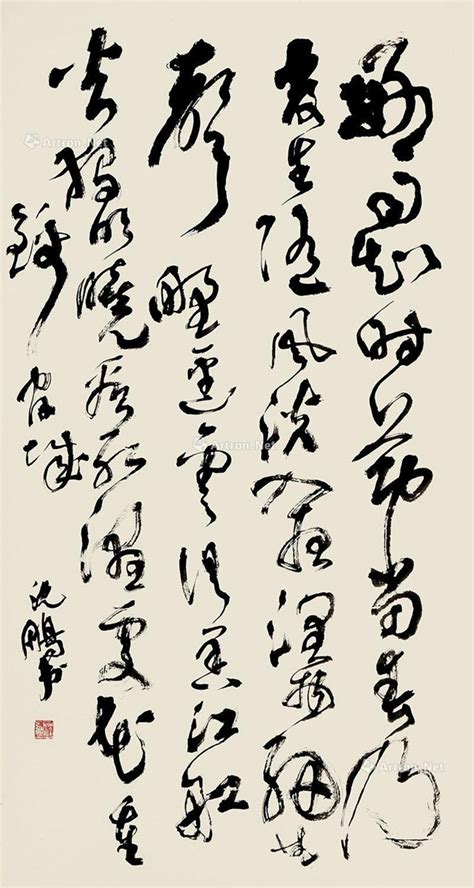 好雨知时節當春乃
發生隨風潛入夜潤物細無
聲野逕雲俱黑江船
火獨明曉看紅濕處花重
錦官城
沈鵬书
Artron.Net